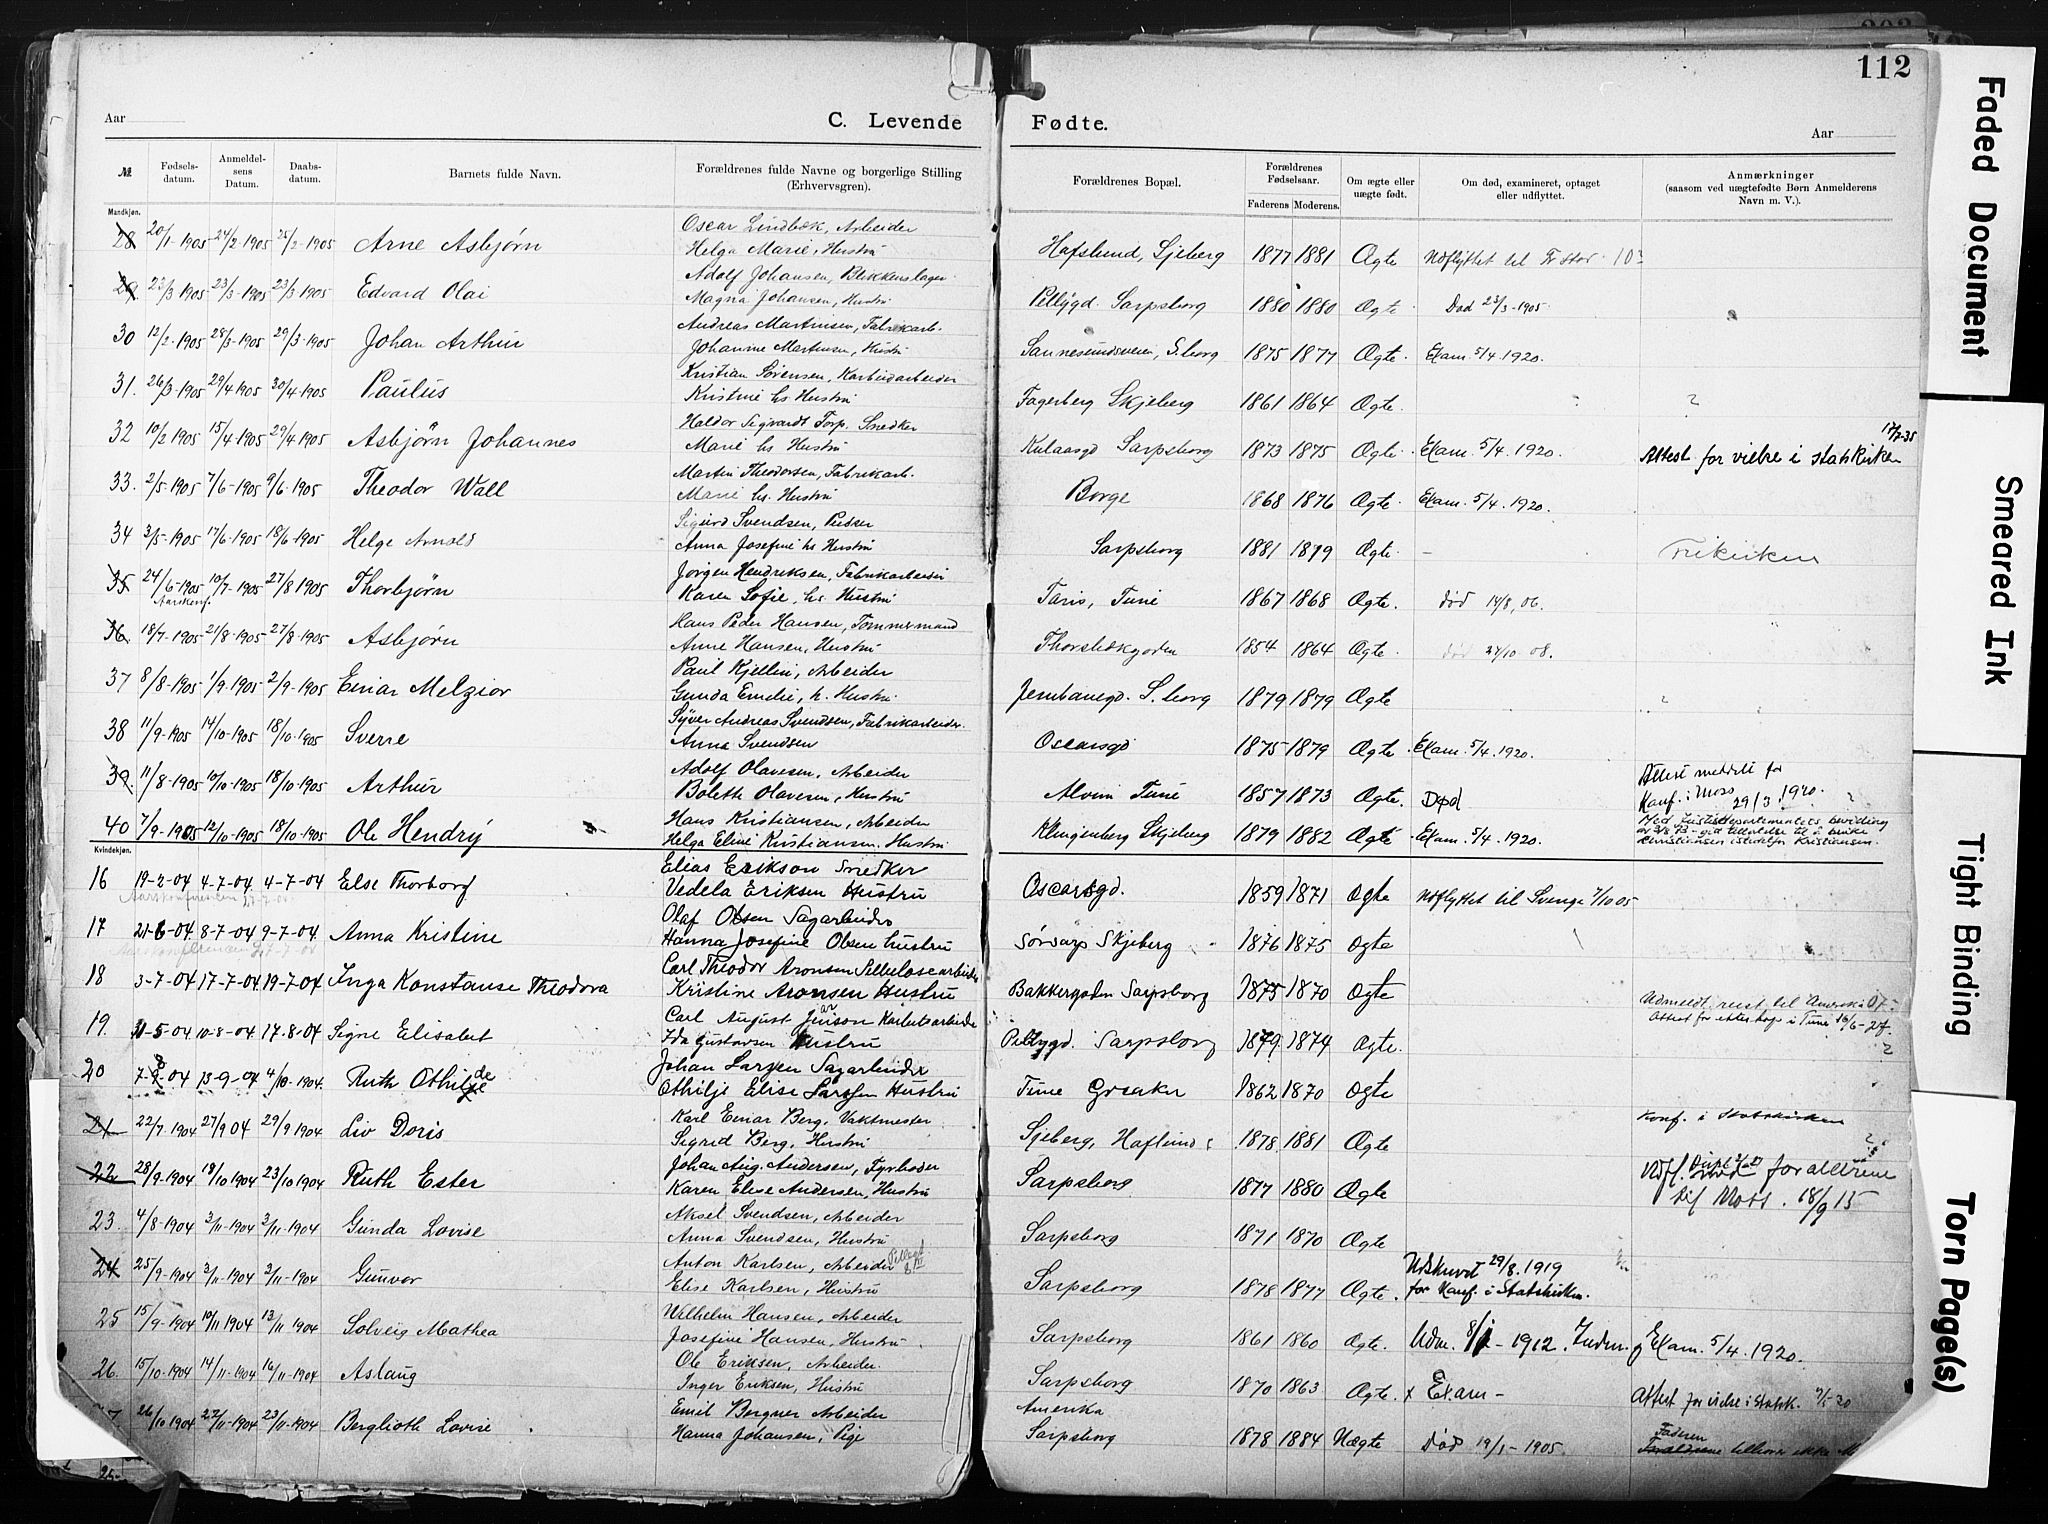 112
Aar
C. Levende Fødte.
Aar
№ Fødsels-datum. Anmeldel-sens Datum. Daabs-datum. Barnets fulde Navn. Forældrenes fulde Navne og borgerlige Stilling (Erhvervsgren). Forældrenes Bopæl. Forældrenes Fødselsaar. Faderens Moderens. Om ægte eller uægte født. Om død, examineret, optaget eller udflyttet. Anmærkninger (saasom ved uægtefødte Børn Anmelderens Navn m. V.).
Mandkjøn.
28 20/1-1905 24/2-1905 25/2-1905 Arne Asbjørn Oscar Lindbæk, Arbeider
Helga Marie, Hustru Hafslund, Sjeberg 1877 1881 Ægte Udflyttet til
29 23/3 1905 23/3-1905 23/3 1905 Edvard Olai Adolf Johansen, Blikkenslager
Magna Johansen, Hustru Pellygd. Sarpsborg 1880 1880 Ægte Død 23/3-1905
30 12/2-1905 28/3-1905 29/3-1905 Johan Arthur Andreas Martinsen, Fabrikarb.
Johanne Martinsen, Hustru Sannesundsveien, S.borg 1875 1877 Ægte Exam 5/4.1920.
31. 26/3 1905 29/4 1905 30/4-1905 Paulus Kristian Sørensen, Karbidarbeider
Kristine hs Hustru Fagerberg Skjeberg 1861 1864 Ægte. ?
32 10/2-1905 15/4-1905 29/4-1905 Asbjørn Johannes Haldor Sigvardt Torp. Snedker
Marie hs Hustru Kulaasgd Sarpsborg 1873 1875 Ægte Exam. 5/4.1920. Attest for vielse i statskirken 17/7-35
33. 2/5-1905 7/6-1905 9/6-1905 Theodor Wall Martin Theodorsen, Fabrikarb.
Marie hs. Hustru Borge 1868 1876 Ægte Exam. 5/4.1920.
34 3/5-1905 17/6-1905 18/6-1905 Helge Arnold Sigurd Svendsen, Pudser
Anna Josefine hs Hustru Sarpsborg 1881 1879 Ægte – Frikirken
35 24/6-1905 10/7-1905 27/8 1905 Thorbjørn Jørgen Hendriksen, Fabrikarbeider
Aarskonf.
Karen Sofie, hs Hustru Taris, Tune 1867 1868 Ægte. død 14/8, 06.
36. 18/7-1905 21/8-1905 27/8-1905 Asbjørn Hans Peder Hansen, Tømmermand
Anne Hansen, Hustru Thorsbækgaden 1854 1864 Ægte. død 27/10 08.
37 8/8-1905 1/9-1905 2/9-1905 Einar Melzior Paul Kjellin, Arbeider
Gunda Emelie, h. Hustru Jernbanegd. S.borg 1879 1879 Ægte
38 11/9-1905 14/10-1905 18/10-1905 Sverre Syver Andreas Svendsen, Fabrikarbeider
Anna Svendsen Oscarsgd 1875 1879 Ægte Exam. 5/4.1920.
39. 11/8-1905 10/10-1905 18/10-1905 Arthur Adolf Olavesen, Arbeider
Boleth Olavesen, Hustru Alvim Tune 1857 1873 Ægte. Død Attest meddelt for
Konf. i Moss 29/3.1920.
40 7/9-1905 12/10-1905 18/10-1905 Ole Hendry Hans Kristiansen, Arbeider
Helga Eline Kristiansen. Hustru Klingenberg Skjeberg 1879 1882 Ægte Exam. 5/4.1920. Med Justisdepartementets bevilling
til å bruke
Christiansen istedetfor Kristiansen.
Kvindekjøn.
16 19-2-04 4-7-04 4-7-04 Else Thorborg Elias Erikson Snedker
Vedela Eriksen Hustru Oscarsgd. 1859 1871 Ægte Udflyttet til Sverige 7/10 05
17 21-6-04 8-7-04 9-7-04 Anna Kristine Olaf Olsen Sagarbeider
Hanna Josefine Olsen hustru Sørsarp Skjeberg 1876 1875 ægte
18 3-7-04 17-7-04 19-7-04 Inga Konstanse Theodora Carl Theodor Aronsen Selluloscarbeider
Kristine Aronsen Hustru Bakkergaden Sarpsborg 1875 1870 Ægte
19. 11-5-04 10-8-04 17-8-04 Signe Elisabet Carl August Jenson Karbidarbeider
Ida Gustavsen Hustru Pellygd. Sarpsborg 1879 1874 Ægte. Udmeldt, reist til Amerika 07.
Attest for ekteskap i Tune 16/6-27.
?
20 7-8-04 13-9-04 4/10-1904 Ruth Othilde Johan Larsen Sagarbeider
Othilje Elise Larsen Hustru Tune Greaker 1862 1870 Ægte
21 22/7 1904 27/9 04 29/9 1904 Liv Doris Karl Einar Berg, Vaktmester
Sigrid Berg, Hustru Sjeberg, Haflund 1878 1881 Ægte Konf. i Statskirken
22 28/9-1904 18/10 1904 23/10 1904 Ruth Ester Johan Aug. Andersen, Fyrbøder
Karen Elise Andersen, Hustru Sarpsborg 1877 1880 Ægte Udfl. med forældrene
til Moss. 18/9 15
23. 4/8-1904 3/11-1904 3/11-1904 Gunda Lovise Aksel Svendsen, Arbeider
Anna Svendsen, Hustru Sarpsborg 1871 1870 Ægte
24 25/9-1904 3/11-1904 3/11-1904 Gunvor Anton Karlsen, Arbeider
Elise Karlsen, Hustru Sarpsborg 1878 1877 Ægte. Udskrevet 29/8.1919
for Konf. i Statskirken.
25 15/9-1904 10/11 1904 13/11 1904 Solveig Mathea Wilhelm Hansen, Arbeider
Josefine Hansen, Hustru. Sarpsborg 1861 1860 Ægte. Udm. 1912. Indm. og Exam. 5/4.1920.
26. 15/10-1904 14/11-1904 16/11-1904 Aslaug Ole Eriksen, Arbeider.
Inger Eriksen, Hustru Sarpsborg 1870 1863 Ægte. x Exam – Attest for vielse i Statsk.
26/10 1904 22/11-1904 23/11-1904 Berglioth Lovise Emil Bergner Arbeider
Hanna Johansen, Pige Amerika
Sarpsborg 1878 1884 Uægte Død 19/1-1905. Faderen
Forældrene tilhører ikke M
Faded Document
Smeared Ink
Tight Binding
Torn Page(s)